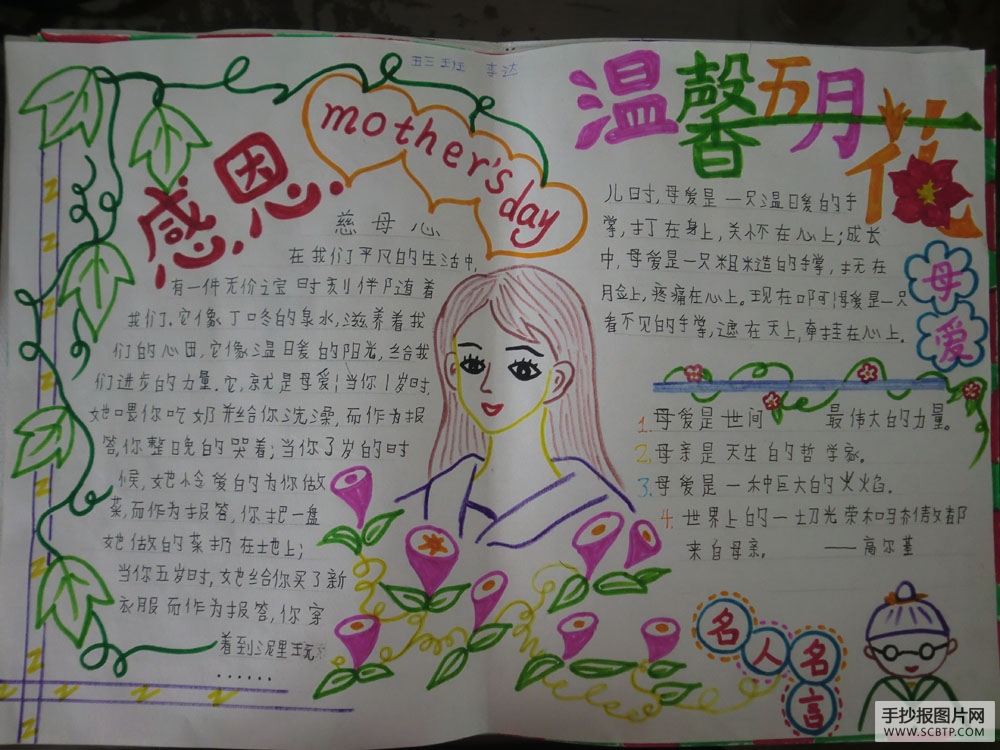 班 李达
感恩
mother's day
慈母心
在我们平凡的生活中,
有一件无价之宝时刻伴随着
我们.它像丁咚的泉水,滋养着我
们的心田,它像温暖的阳光,给我
们进步的力量.它,就是母爱!当你1岁时,
她喂你吃奶并给你洗澡,而作为报
答,你整晚的哭着;当你了岁的时
候,她怜爱的为你做
菜,而作为报答,你把一盘
她做的菜扔在地上;
当你五岁时,她给你买了新
衣服而作为报答,你穿
着到泥里玩
......
温馨五月花
儿时,母爱是一只温暖的手
掌,打在身上,关怀在心上;成长
中,母爱是一只粗糙的手掌,
月脸上,疼痛在心上。现在
看不见的手掌,遮在天上,牵挂在心上。
母爱
1.母爱是世间 最伟大的力量。
2.母亲是天生的哲学家。
3.母爱是一种巨大的火焰。
4.世界上的一切光荣和骄傲都
来自母亲。 ——高尔基
名人名言
手抄报图片网
WWW.SCBTP.COM